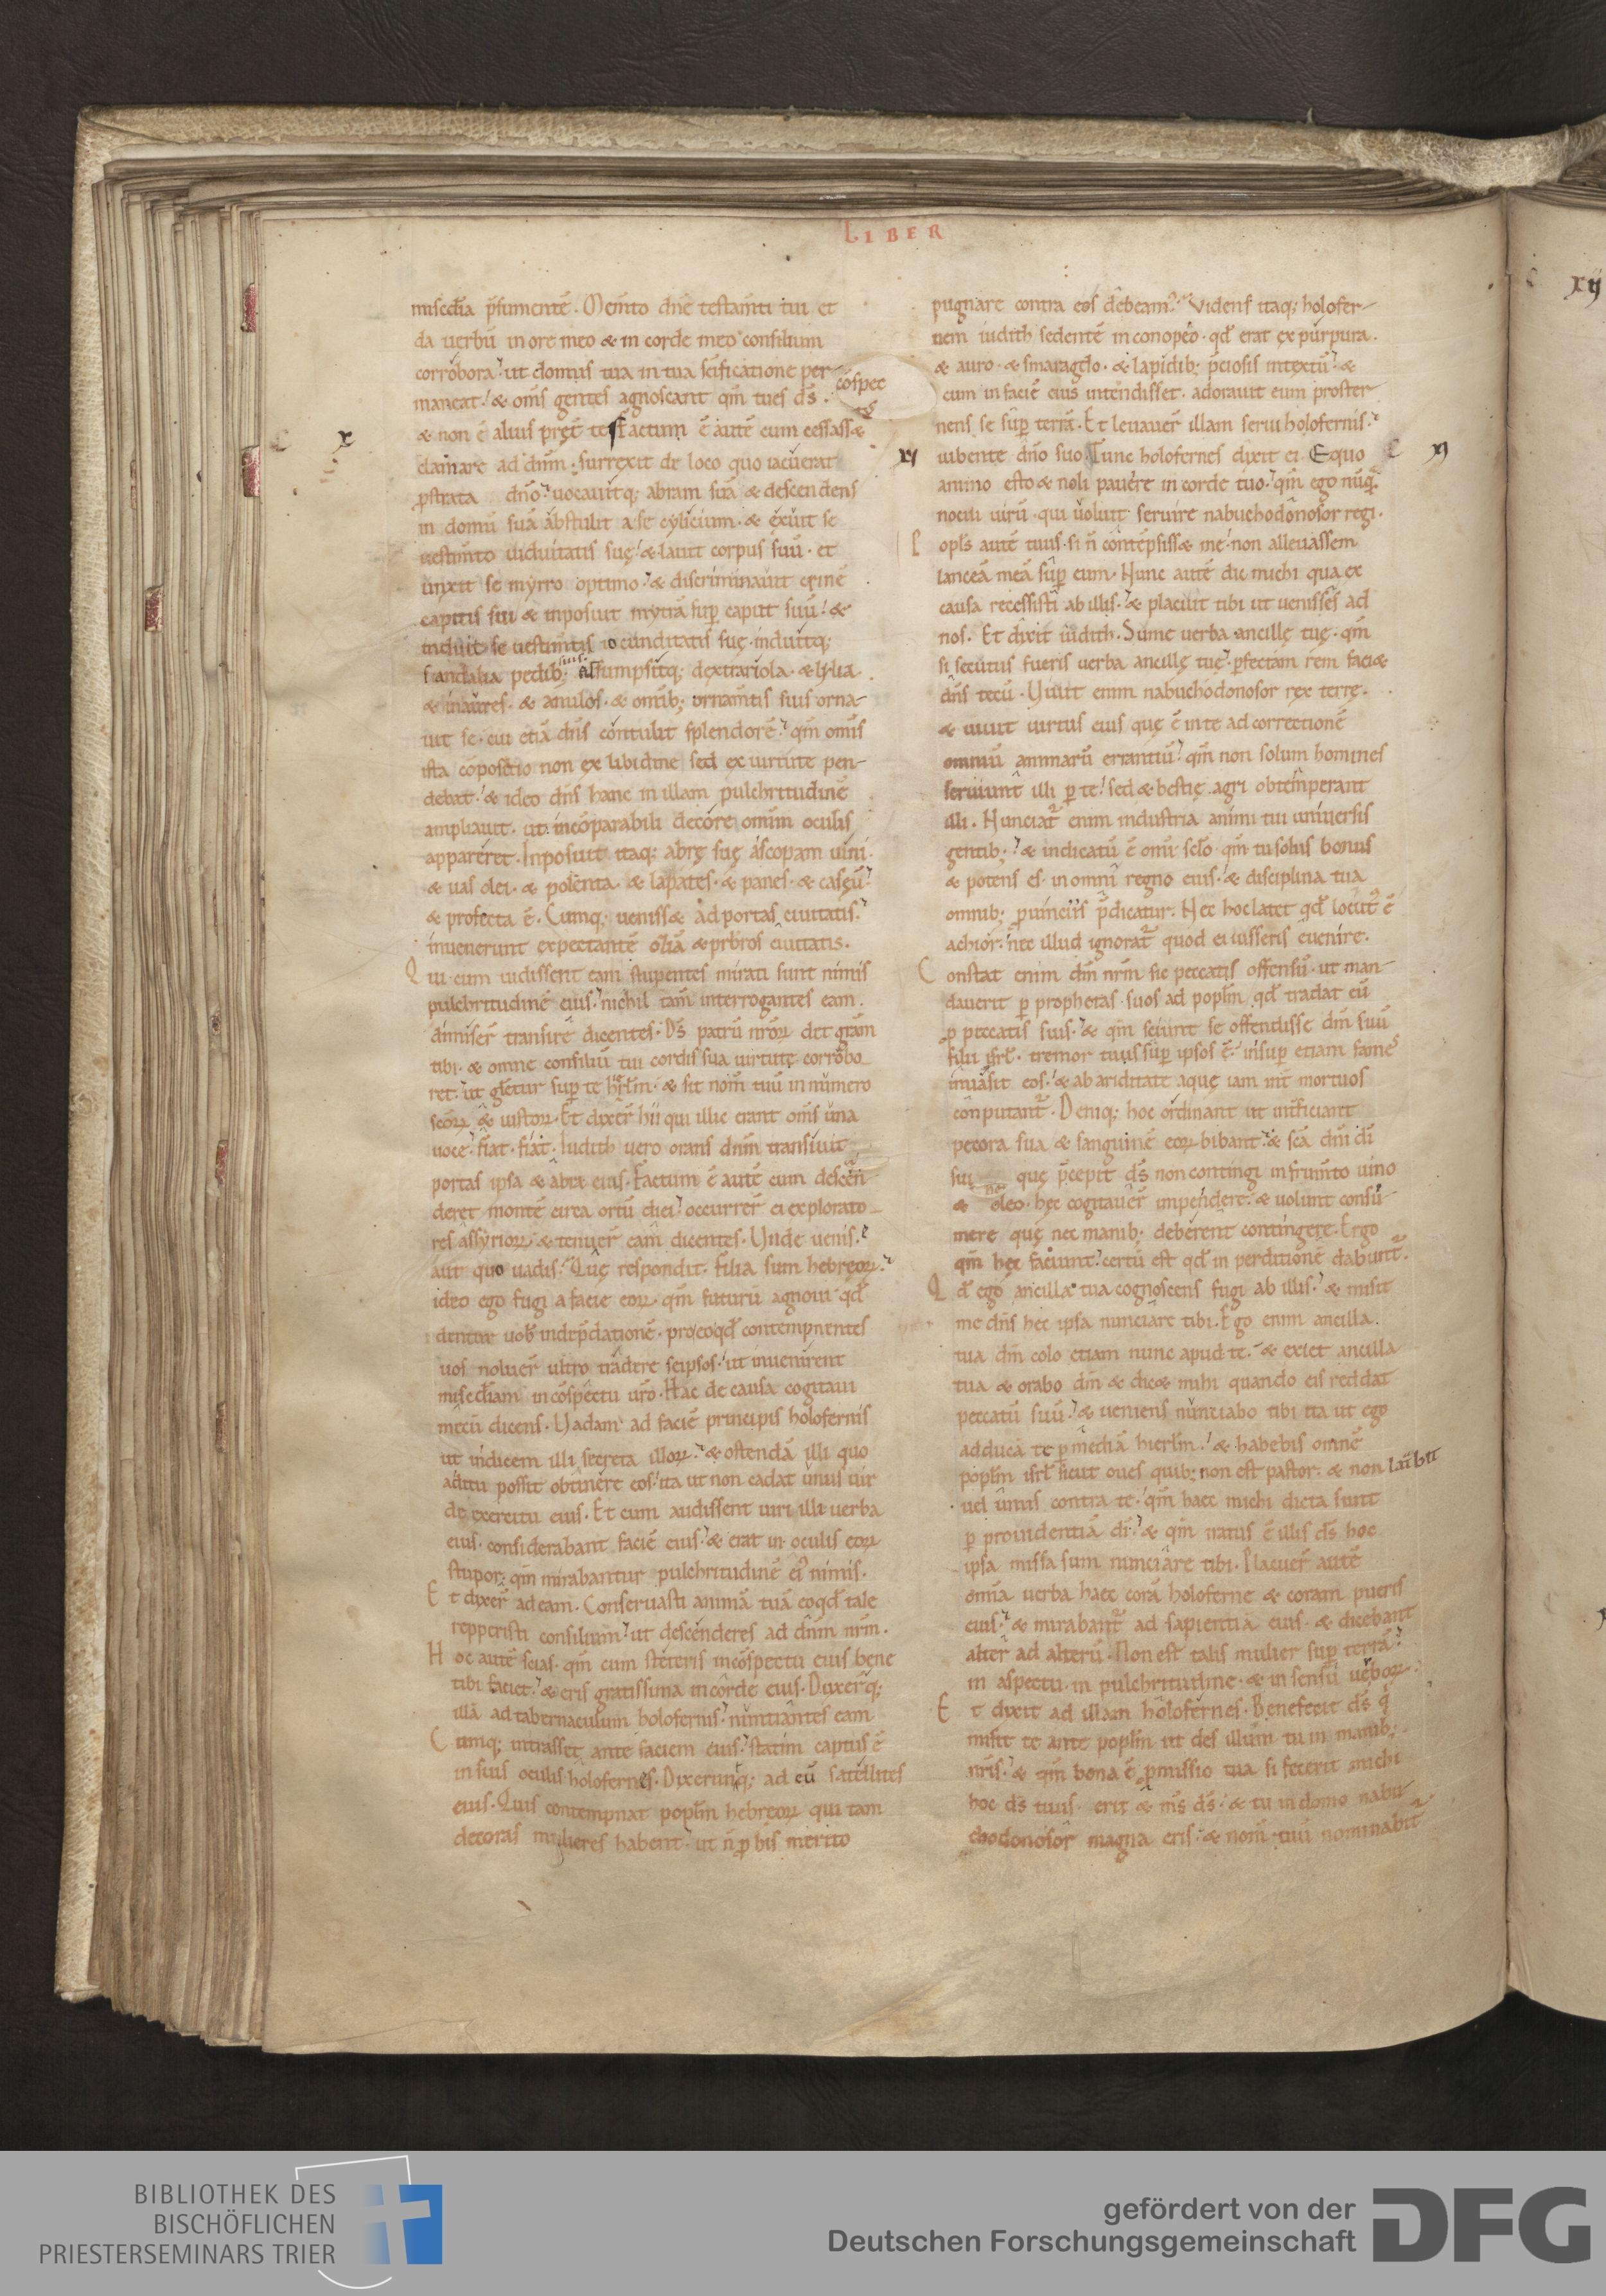 LIBER
misc̄dia p̄sumentē. Mem̄to dn̄e testam̄ti tui et
da uerbū in ore meo & in corde meo consilium
corrobora. ut domus tua in tua sc̄ificatione per-
maneat. & om̄s gentes agnoscant qm̄ tu es d̄s.
& non ē alius pręt̄ te Factum ē autē cum cessass&
clamare ad dn̄m. surrexit de loco quo iacuerat
ꝓstrata dn̄o. uocauitq; abram suā & descendens
in domū suā abstulit a se cylicium. & exuit se
uestim̄to uiduitatis suę. & lauit corpus suū. et
unxit se myrro optimo. & discriminauit crinē
capitis sui & inposuit mytrā sup̄ caput suū. &
induit se uestim̄tis iocunditatis suę. induitq;
sandalia pedib; suis. assumpsitq; dextrariola. & lylia.
& inaures. & anulos. & omīb; ornam̄tis suis orna-
uit se. cui etiā dn̄s contulit splendorē. qm̄ om̄is
ista cōpositio non ex libidine sed ex uirtute pen-
debat. & ideo dn̄s hanc in illam pulchritudinē
ampliauit. ut incōparabili decore omīm oculis
appareret. Inposuit itaq; abrę suę ascopam uini.
& uas olei. & polenta & lapates. & panes. & caseū.
& profecta ē. Cumq; veniss& ad portas ciuitatis.
inuenerunt expectantē oziā & pr̄bros ciuitatis.
Qui cum uidissent eam stupentes mirati sunt nimis
pulchritudinē eius. nichil tam̄ interrogantes eam.
dimiser̄ transire dicentes. D̄s patrū nr̄oꝝ det gr̄am
tibi. & omne consiliū tui cordis sua uirtute corrobo-
ret. ut gl̄etur sup̄ te hierl̄m. & sit nom̄ tuū in numero
sc̄oꝝ & iustoꝝ. Et dixer̄ hii qui illic erant om̄s una
uoce. fiat. fiat. Iudith uero orans dn̄m transiuit
portas ipsa & abra eius. Factum ē autē cum descen-
deret montē circa ortū diei. occurrer̄ ei explorato-
res assyrioꝝ. & tenuer̄ eam dicentes. Unde uenis.
aut quo uadis. Quę respondit. filia sum hebreoꝝ.
ideo ego fugi a facie eoꝝ. qm̄ futurū agnoui qd̄
dentur uob̄ in depr̄dationē. pro eo qd̄ contempnentes
uos noluer̄ ultro tradere seipsos. ut inuenirent
misc̄diam in cōspectu ur̄o. Hac de causa cogitaui
mecū dicens. Uadam ad faciē principis holofernis
ut indicem illi secreta illoꝝ. & ostendā illi quo
aditu possit obtinere eos. ita ut non cadat unus uir
de exercitu eius. Et cum audissent uiri illi uerba
eius. considerabant faciē eius. & erat in oculis eoꝝ
stupor. qm̄ mirabantur pulchritudinē eī nimis.
Et dixer̄ ad eam. Conseruasti animā tuā eo qd̄ tale
repperisti consilium. ut descenderes ad dn̄m nr̄m.
Hoc autē scias. qm̄ cum steteris in cōspectu eius bene
tibi faciet. & eris gratissima in corde eius. Duxer̄q;
illā ad tabernaculum holofernis. nuntiantes eam
Cumq; intrasset ante faciem eius. statim captus ē
in suis oculis holofernes. Dixerunq; ad eū satellites
eius. Quis contempnat popl̄m hebreoꝝ qui tam
decoras mulieres habent. ut n̄ ꝓ his merito
cōspec
tē
x
pugnare contra eos debeam. Videns itaq; holofer-
nem iudith sedentē in conopeo. qd̄ erat ex purpura.
& auro. & smaragdo. & lapidib; p̄ciosis intextū. &
cum in faciē eius intendisset. adorauit eum proster
nens se sup̄ terrā. Et leuauer̄ illam serui holofernis.
iubente dn̄o suo Tunc holofernes dixit ei. Equo
animo esto & noli pauere in corde tuo. qm̄ ego nūq̄
nocui uirū. qui uoluit seruire nabuchodonosor regi.
Popl̄s autē tuus. si n̄ contēpsiss& me. non alleuassem
lanceā meā sup̄ eum. Nunc autē dic michi qua ex
causa recessisti ab illis. & placuit tibi ut uenisses ad
nos. Et dixit iudith. Sume uerba ancillę tuę. qm̄
si secutus fueris uerba ancillę tuę. perfectam rem faci&
dn̄s tecū. Uiuit enim nabuchodonosor rex terrę.
& uiuit uirtus eius quę ē in te ad correctionē
omniū animarū errantiū. qm̄ non solum homines
seruiunt illi p te. sed & bestię agri obtemperant
illi. Nunciat̄ enim industria animi tui uniuersis
gentib;. & indicatū ē omi sc̄lo qm̄ tu solus bonus
& potens es. in omni regno eius. & disciplina tua
omnib; ꝓuinciis p̄dicatur. Nec hoc latet qd̄ locut̄ ē
achior. nec illud ignorat̄ quod ei iusseris euenire.
Constat enim dm̄ nr̄m sic peccatis offensū. ut man-
dauerit p prophetas suos ad popl̄m qd̄ tradat eū
ꝓ peccatis suis. & qm̄ sciunt se offendisse dm̄ suū
filii isrl̄. tremor tuus sup̄ ipsos ē. insup̄ etiam fames
inuasit eos. & ab ariditate aquę iam int̄ mortuos
conputant̄. Deniq; hoc ordinant ut int̄ficiant
pecora sua & sanguinē eoꝝ bibant. & sc̄a dn̄i dī
sui quę p̄cepit d̄s non contingi in frum̄to uino
& oleo. hęc cogitauer̄ impendere. & uolunt consu-
mere quę nec manib; deberent contingere. Ergo
qm̄ hęc faciunt. certū est qd̄ in perditionē dabunt̄.
Qd̄ ego ancilla tua cognoscens fugi ab illis. & misit
me dn̄s hec ipsa nunciare tibi. Ego enim ancilla.
tua dm̄ colo etiam nunc apud te. & exiet ancilla
tua & orabo dm̄ & dic& mihi quando eis reddat
peccatū suū. & ueniens nunciabo tibi ita ut ego
adducā te p mediā hierl̄m. & habebis omnē
popl̄m isrl̄ sicut oues quib; non est pastor. & non latbit
uel unus contra te. qm̄ haec michi dicta sunt
p prouidentiā dī. & qm̄ iratus ē illis d̄s hoc
ipsa missa sum nunciare tibi. Placuer̄ autē
omnia uerba haec corā holoferne & coram pueris
eius. & mirabant̄ ad sapientiā eius. & dicebant
alter ad alterū. Non est talis mulier sup̄ terrā.
in aspectu. in pulchritudine. & in sensu uerboꝝ.
Et dixit ad illam holofernes. Benefecit d̄s q̄
misit te ante popl̄m ut des illum tu in manib;
nr̄is. & qm̄ bona ē ꝓmissio tua si fecerit michi
hoc d̄s tuus. erit & m̄s d̄s. & tu in domo nabu-
chodonosor magna eris. & nom̄ tuū nominabit̄
xi
xi
xij
BIBLIOTHEK DES
BISCHÖFLICHEN
PRIESTERSEMINARS TRIER
gefördert von der
Deutschen Forschungsgemeinschaft
DFG